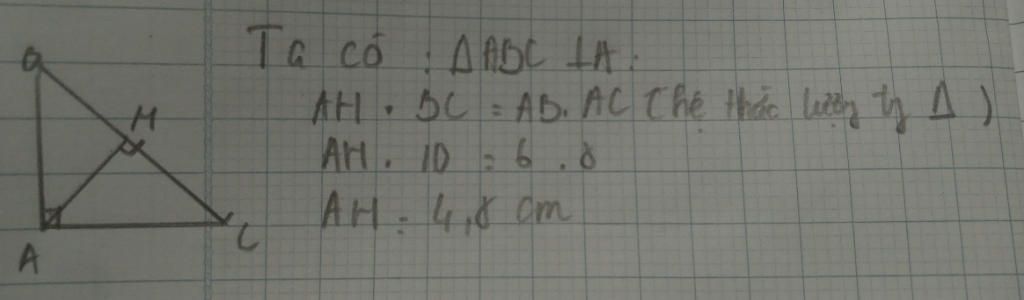 Ta có : ΔABC ⊥A.
AH . BC = AB. AC (hệ thức lượng tg Δ)
AH . 10 = 6 . 8
AH = 4,8 cm
B
H
A
C